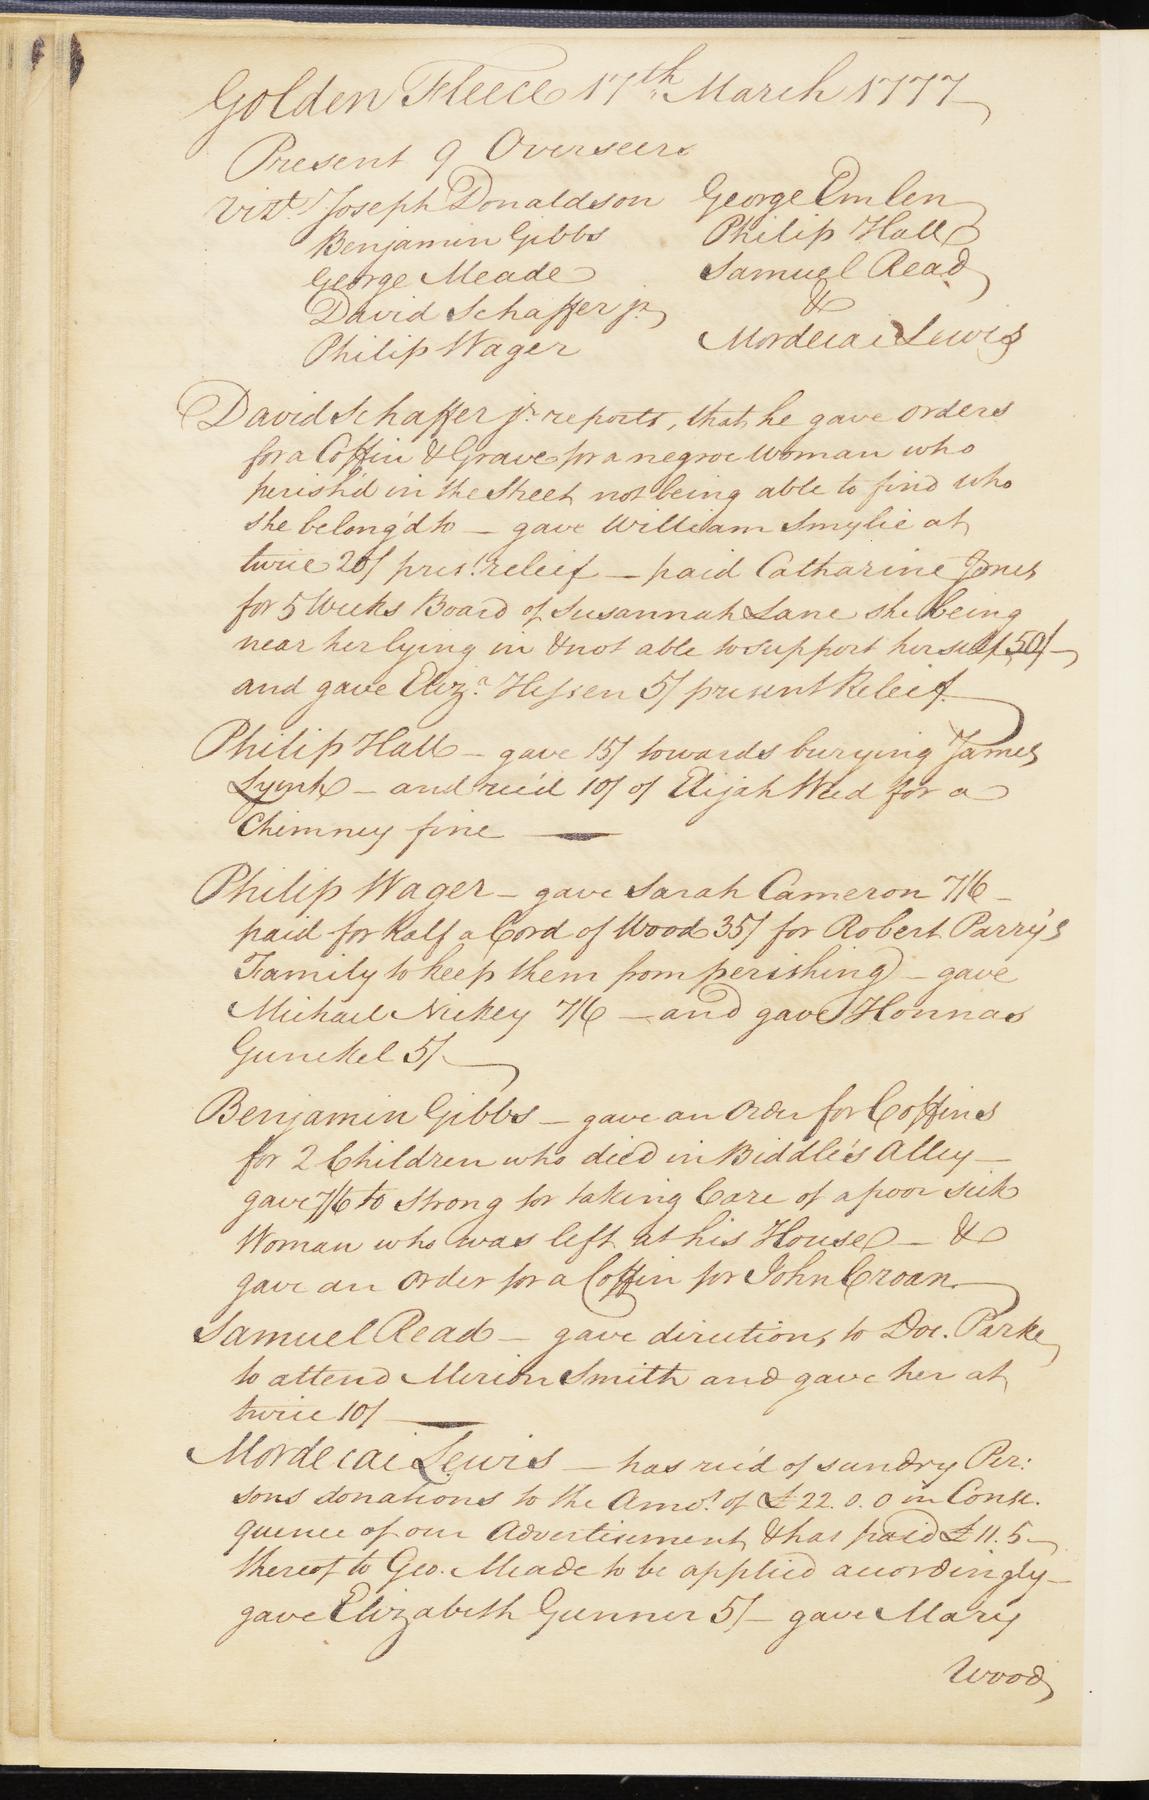 Golden Fleece 17th March 1777
Present 9 Overseers
vizt. Joseph Donaldson George Emlen
Benjamin Gibbs Philip Hall
George Meade Samuel Read
David Schaffer jr. &
Philip Wager Mordecai Lewis
David Schaffer jr. reports, that he gave orders
for a Coffin & Grave for a negroe Woman who
perish'd in the Street not being able to find who
she belong'd to — gave William Smylie at
twice 20/ pres.t releif — paid Catharine Jones
for 5 Weeks Board of Susannah Lane she being
near her lying in & not able to support herself 50/—
and gave Eliz.a Hessen 5/ present Releif.
Philip Hall — gave 15/ towards burying James
Lynch — and rec'd 10/ of Elijah Weed for a
Chimney fine —
Philip Wager — gave Sarah Cameron 7/6 —
paid for half a Cord of Wood 35/ for Robert Parry's
Family to keep them from perishing — gave
Michael Nickey 7/6 — and gave Honnas
Gunckel 5/—
Benjamin Gibbs — gave an Order for Coffins
for 2 Children who died in Biddle's Alley —
gave 7/6 to Strong for taking Care of a poor sick
Woman who was left at his House — &
gave an Order for a Coffin for John Croan.
Samuel Read — gave directions to Doc. Parke
to attend Merion Smith and gave her at
twice 10/ —
Mordecai Lewis — has rec'd of sundry Per:
sons donations to the Amo.t of £22.0.0 in Conse.
quence of our Advertisement, & has paid £11.5—
thereof to Geo. Meade to be applied accordingly —
gave Elizabeth Gunner 5/— gave Mary
Wood